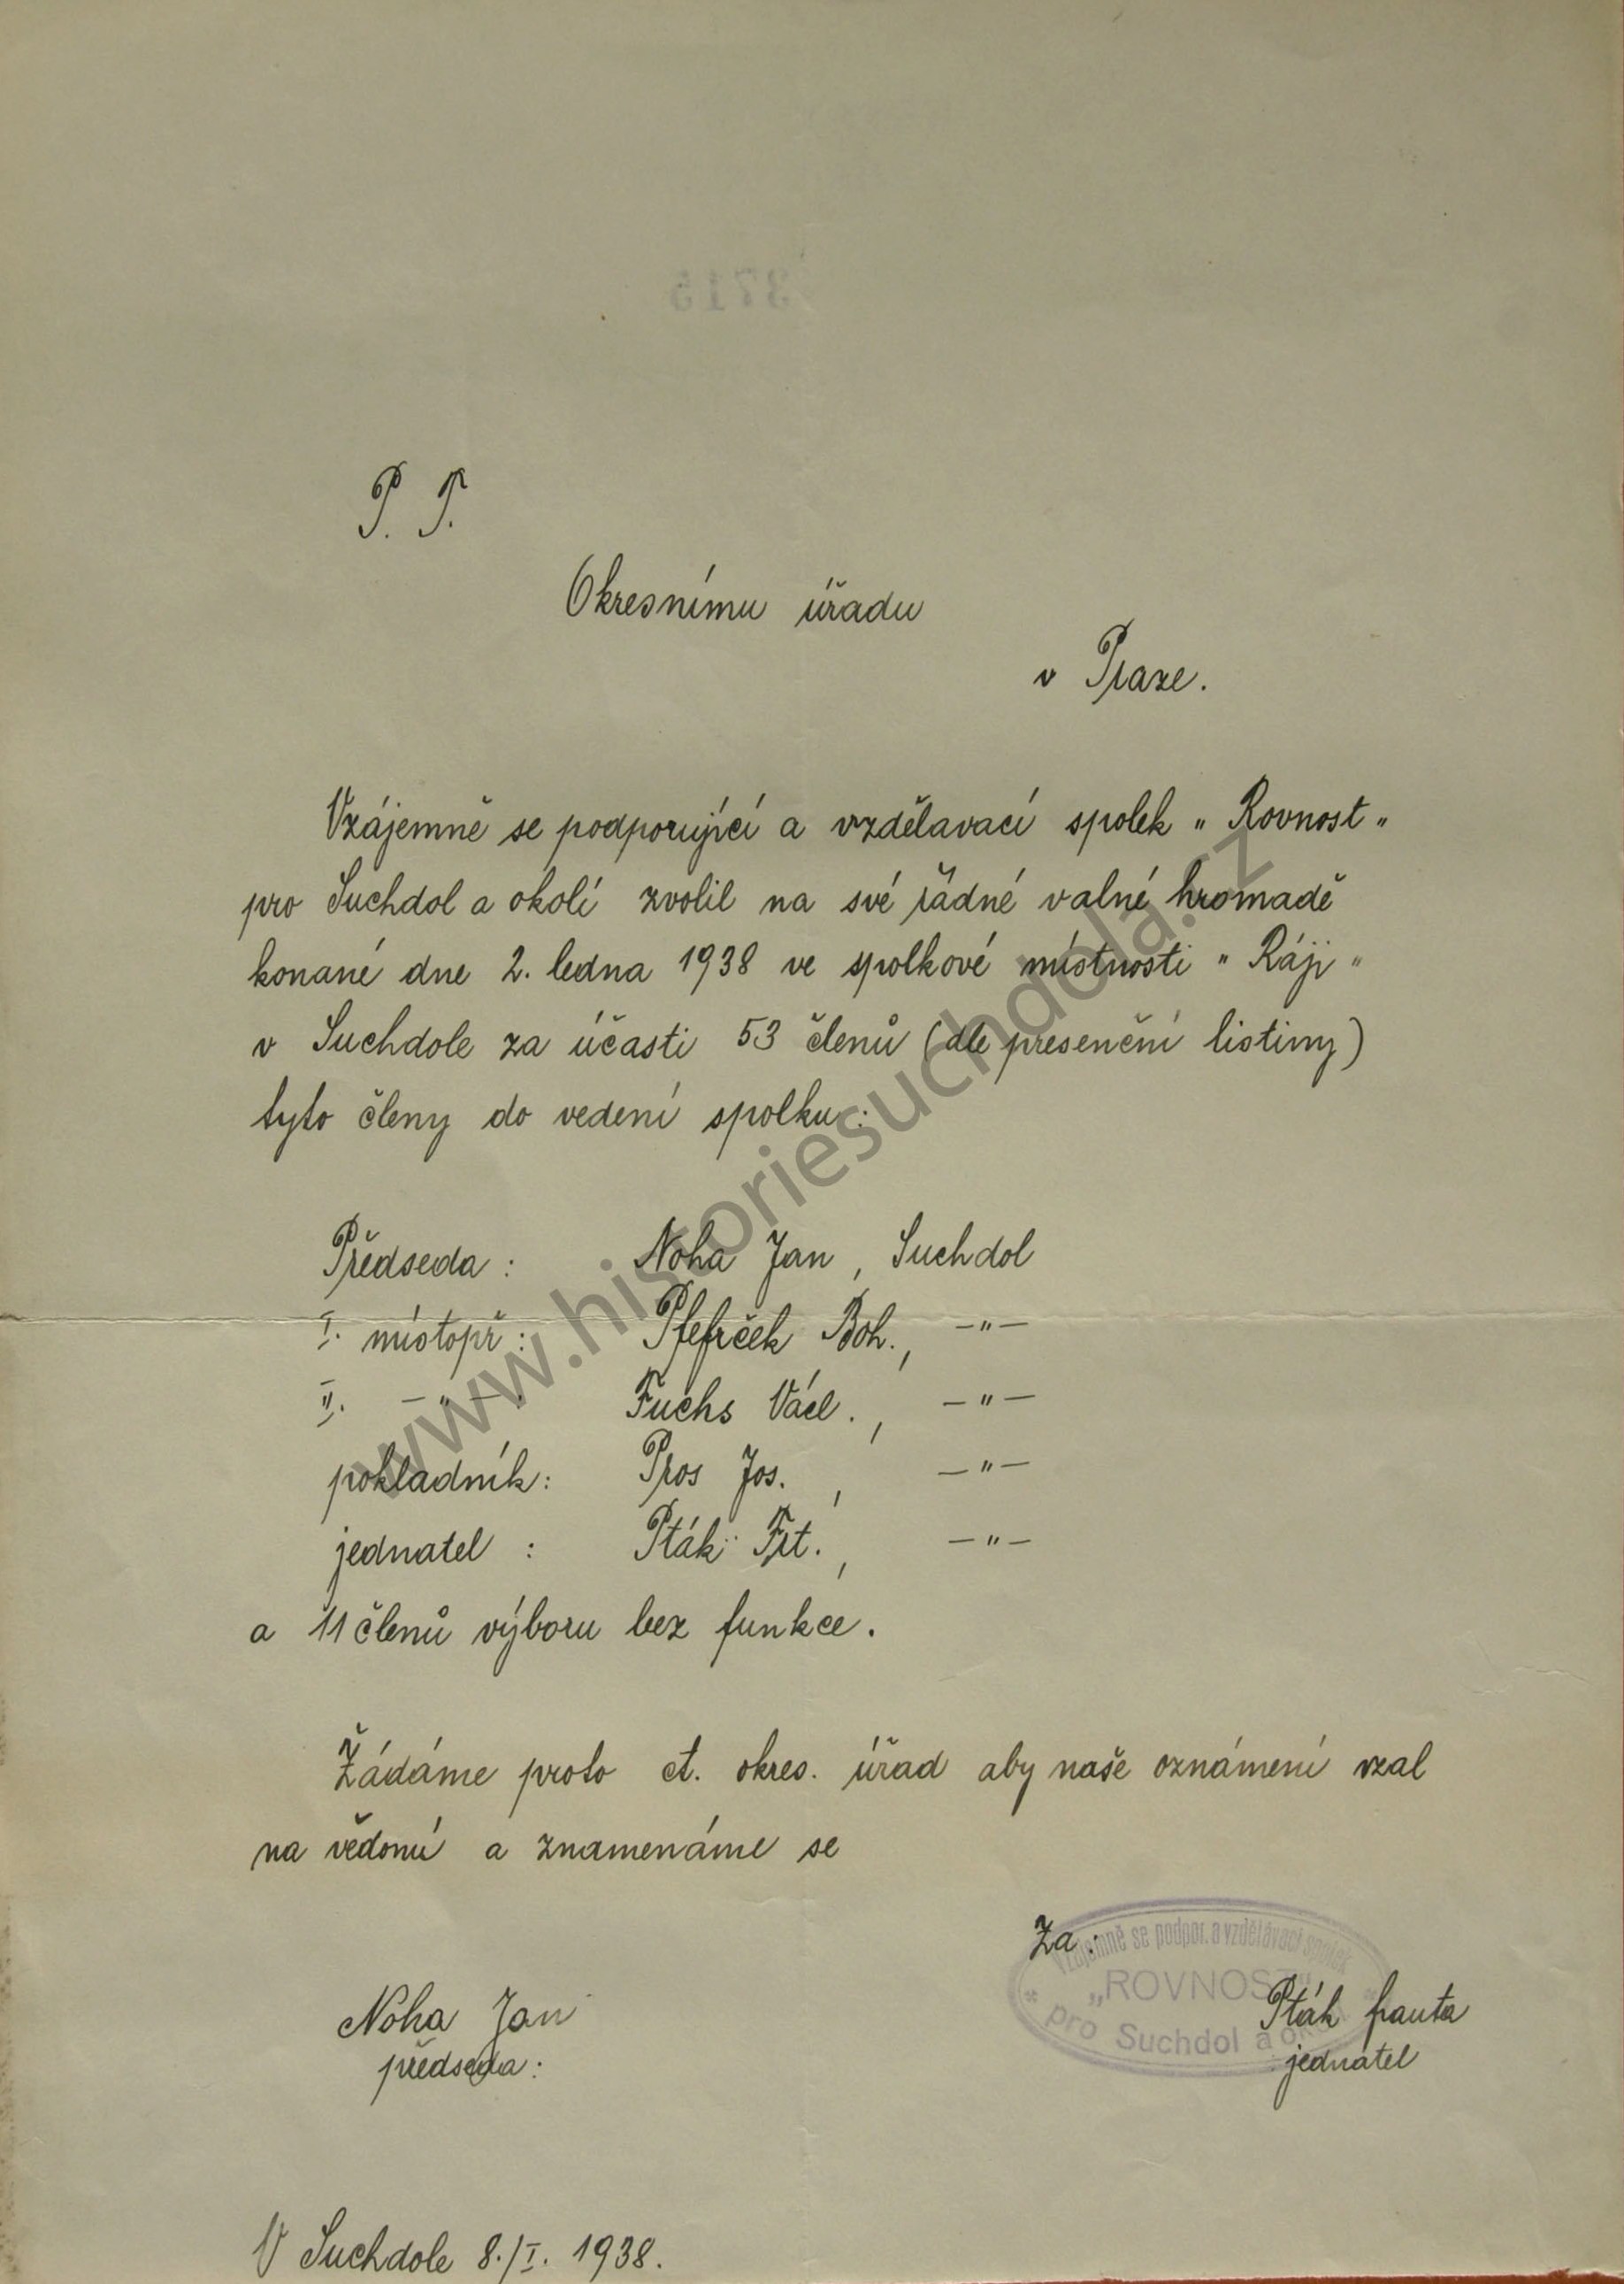 3715
P. T.
Okresnímu úřadu
v Praze.
Vzájemně se podporující a vzdělavací spolek " Rovnost "
pro Suchdol a okolí zvolil na své řádné valné hromadě
konané dne 2. ledna 1938 ve spolkové místnosti " Ráji "
v Suchdole za účasti 53 členů (dle presenční listiny)
tyto členy do vedení spolku:
Předseda : Noha Jan, Suchdol
I. místopř : Pfefrček Boh., —"—
II. —"— : Fuchs Václ., —"—
pokladník: Pros Jos., —"—
jednatel : Pták Frt., —"—
a 11 členů výboru bez funkce.
Žádáme proto ct. okres. úřad aby naše oznámení vzal
na vědomí a znamenáme se
Za:
Vzájemně se podpor. a vzdělávací spolek
„ROVNOST"
pro Suchdol a okolí
Noha Jan
předseda:
Pták franta
jednatel
V Suchdole 8./I. 1938.
www.historiesuchdola.cz